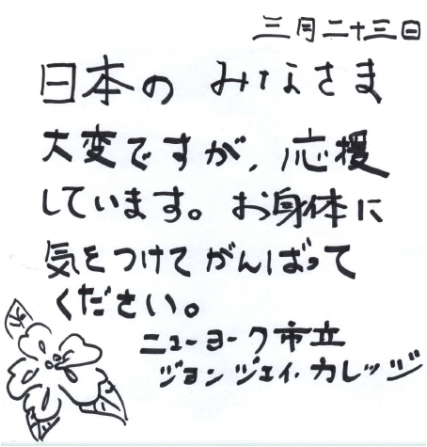 三月二十三日
日本の みなさま
大変ですが、応援
しています。お身体に
気をつけてがんばって
ください。
ニューヨーク市立
ジョンジェイ・カレッジ